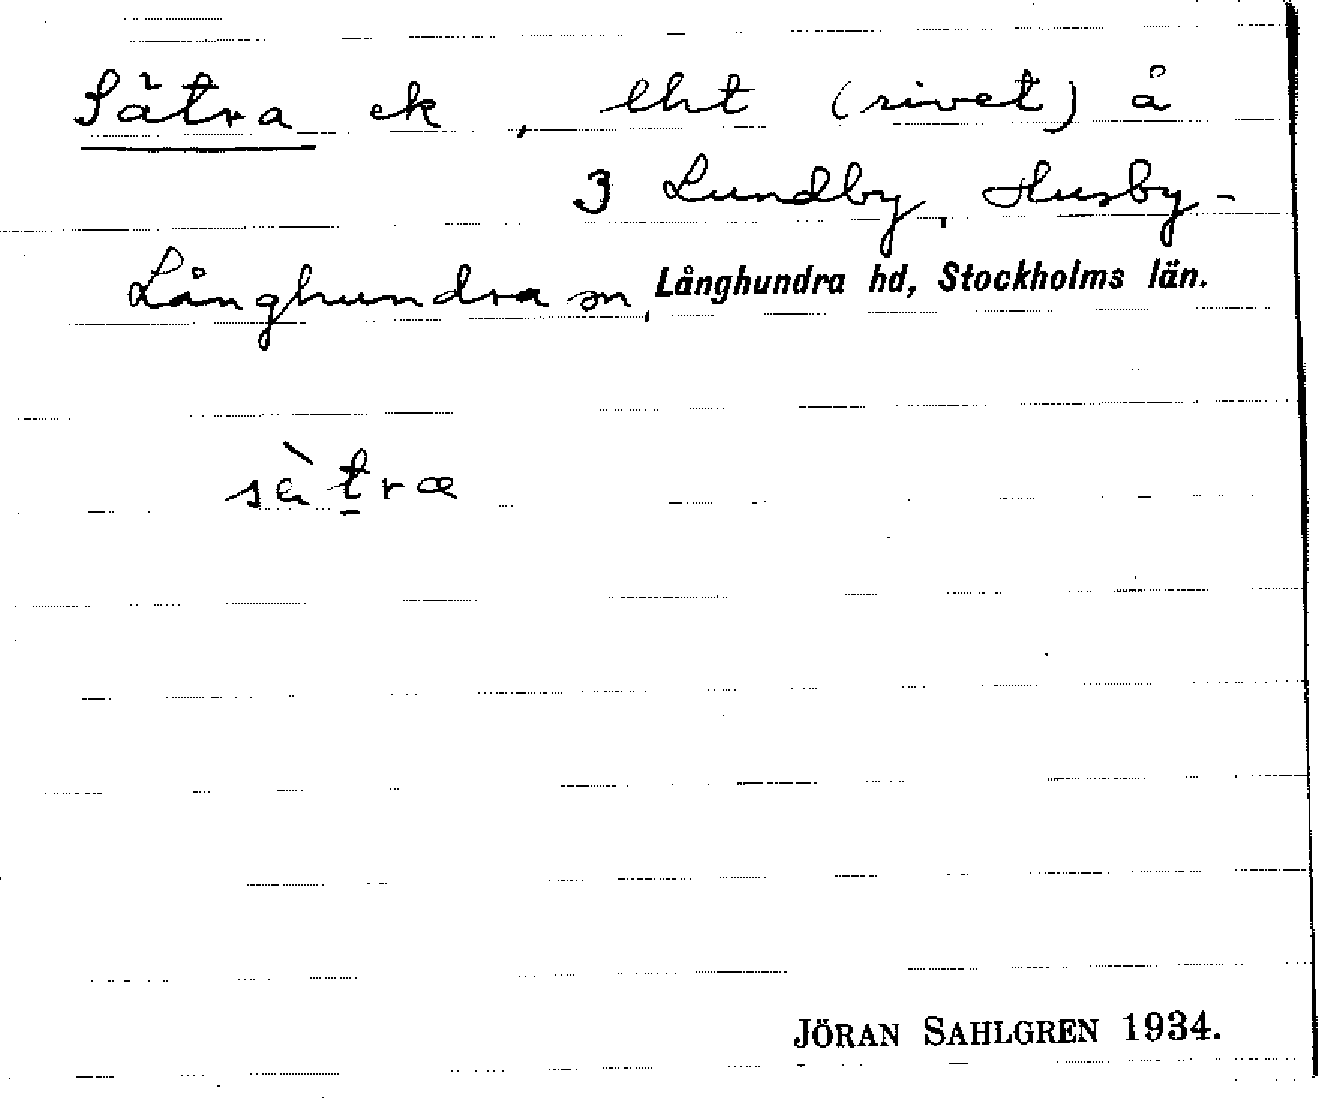 Sätra ek, lht (rivet) å
3 Lundby, Husby-
Långhundra sn, Långhundra hd, Stockholms län.
sètra
JÖRAN SAHLGREN 1934.